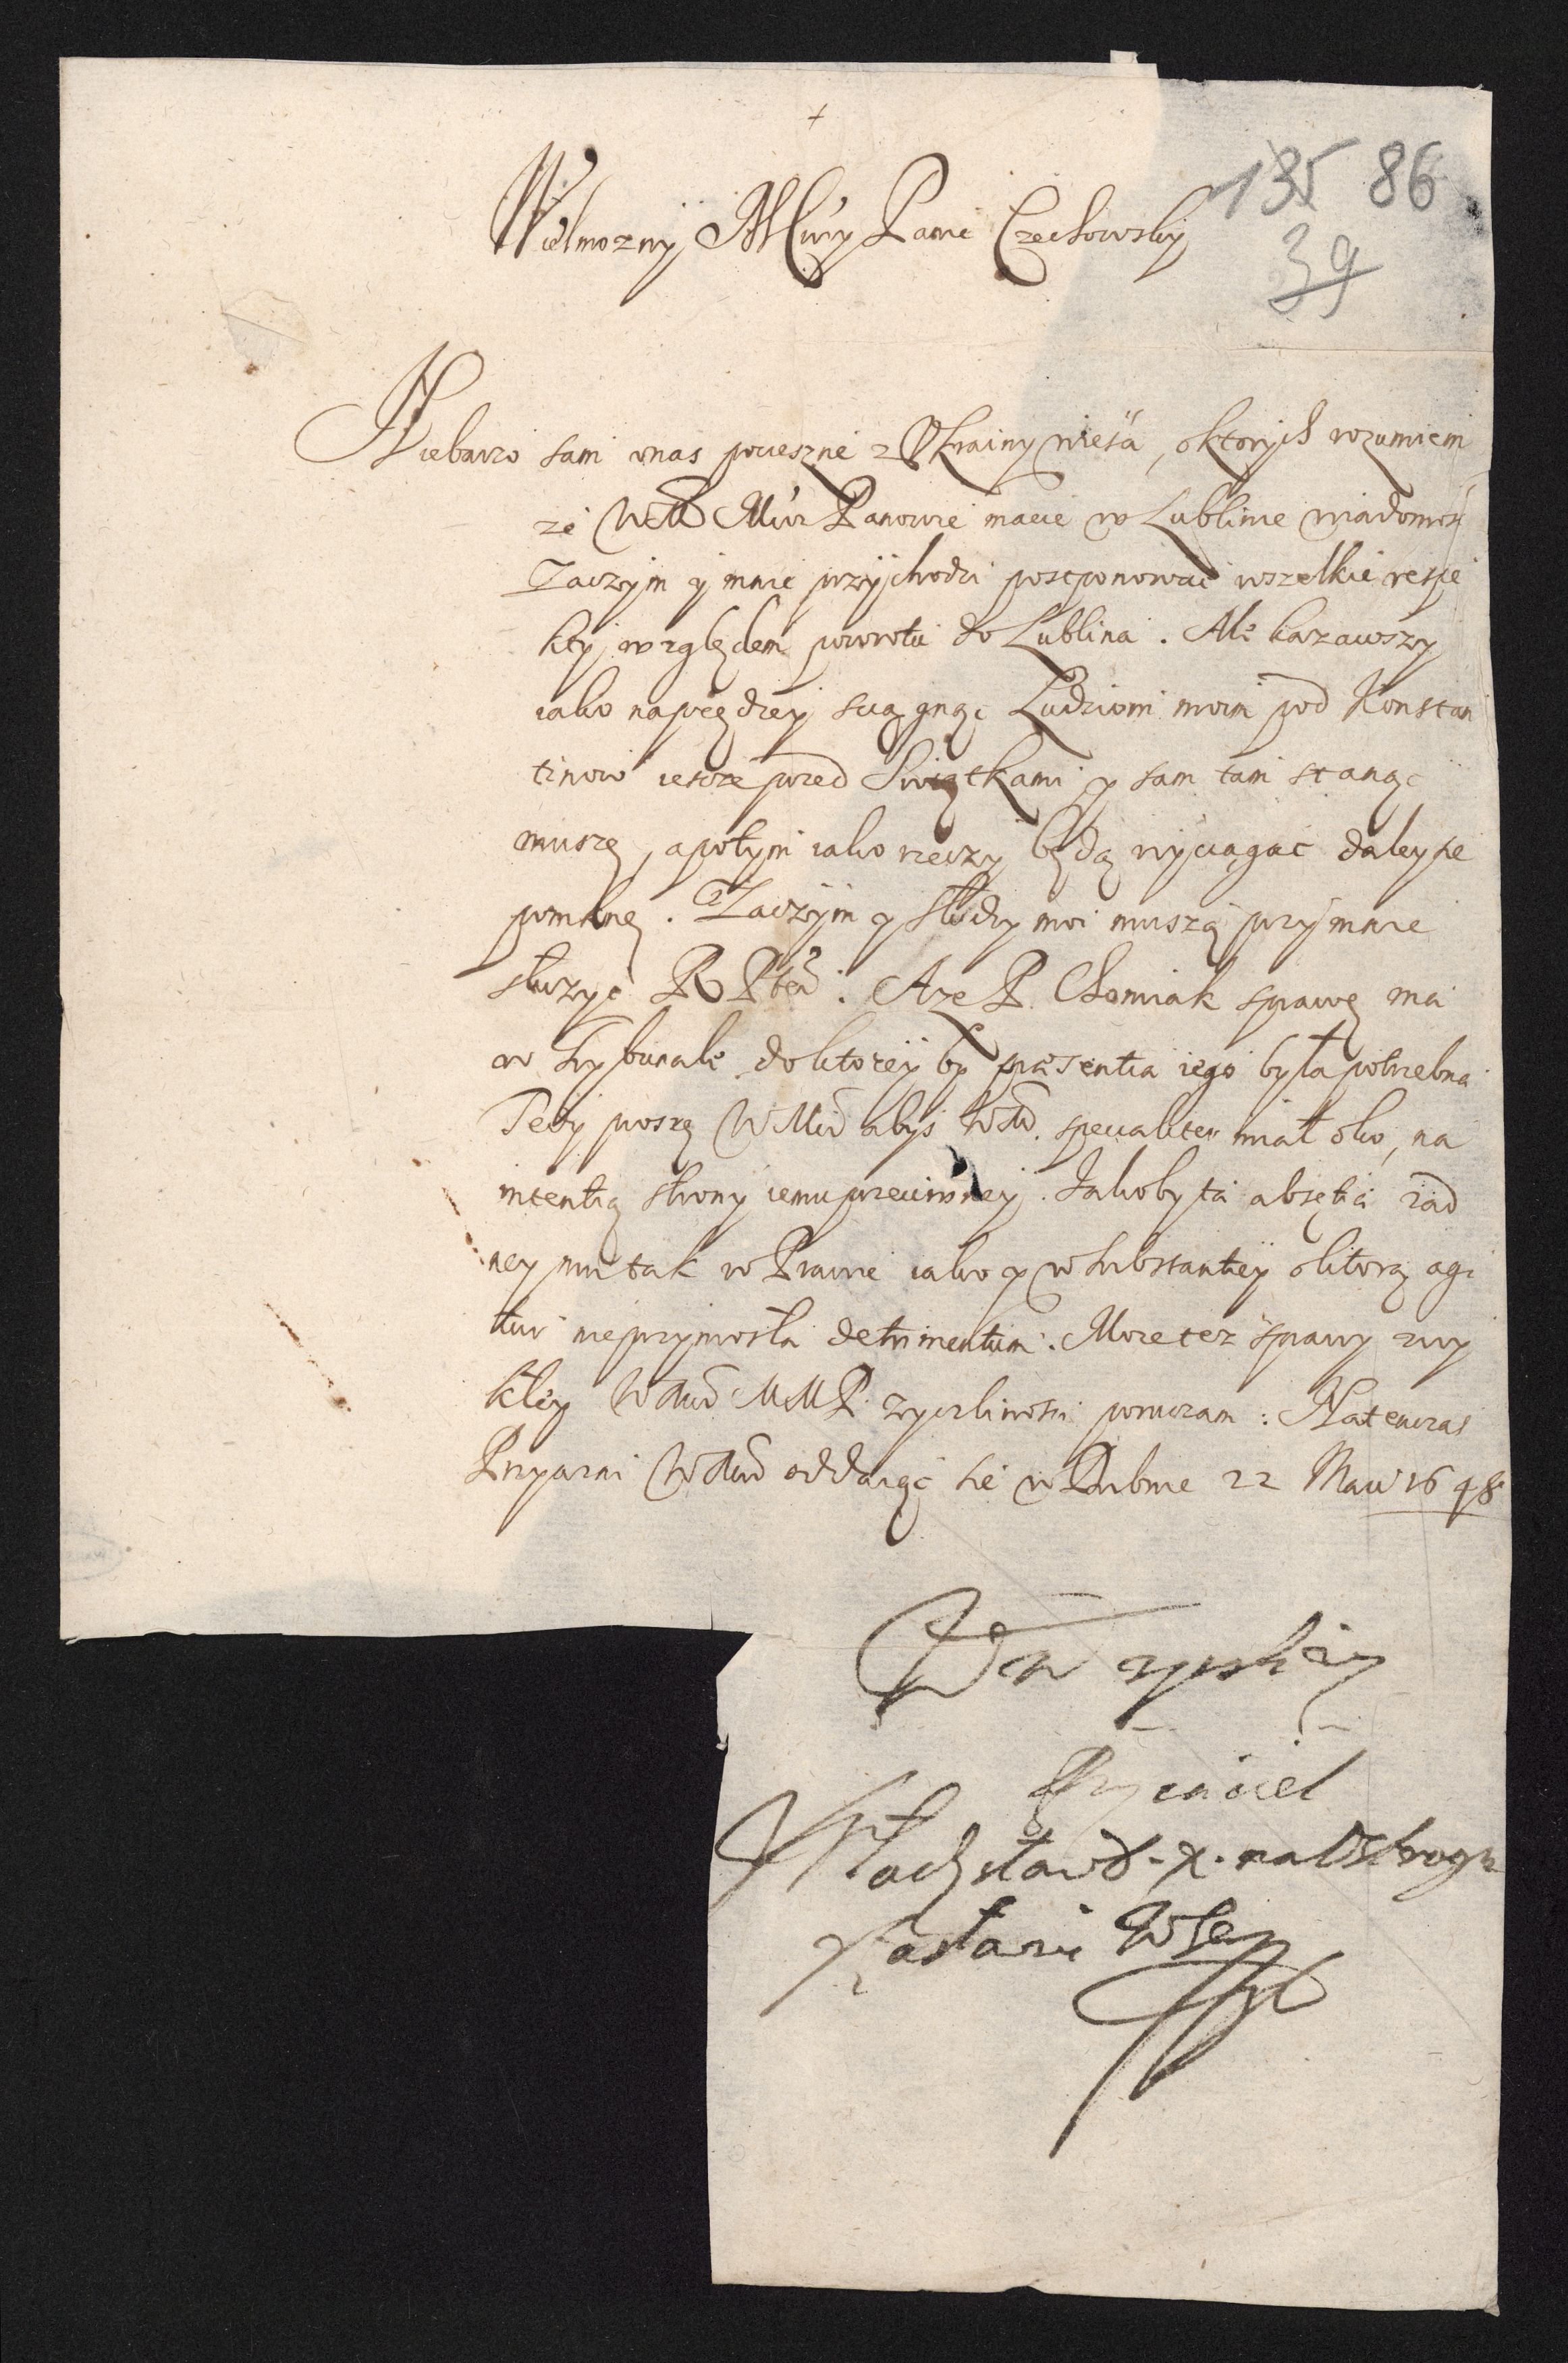 +
135 86
39
Wielmozny Mćiwy Panie Czechowsky
Niebarzo sam vnas pocieszne z Vkrainy wieśći, oktorych rozumiem
ze WM Mćiwi Panowie macie w Lublinie wiadomość
Zaczym y mnie przychodzi postponować wszelkie respe
kty względem powrotu do Lublina. Ale kazawszy
iako naprędzey sciągnąc Ludziom moim pod Konstan
tinow ieszcze pzed Swiątkami y sam tam stanąc
muszę, apotym iako rzeczy będą wyciągac daley sie
pomknę. Zaczym y Słudzy moi muszą przy mnie
służyc R Ptey. Aze P. Chomiak sprawę ma
w Trybunale do ktorey by praesentia iego była potrzebna
Tedy proszę WMći abyś WM. specialiter miał oko, na
intentią strony iemu przeciwney. Jakoby ta absętia zad
ney mu tak w Prawie iako y w Substantiey o ktorą agi
tur nieprzyniosła detrimentum. Moie tez sprawy zwy
kłey WMći MMP. zyczliwości poruczam: Natenczas
Przyazni WMći oddaięc sie w Dubnie 22 Maii 1648
Przyiaciel
Władysław D. X. na Ostrogu
Zasławiu